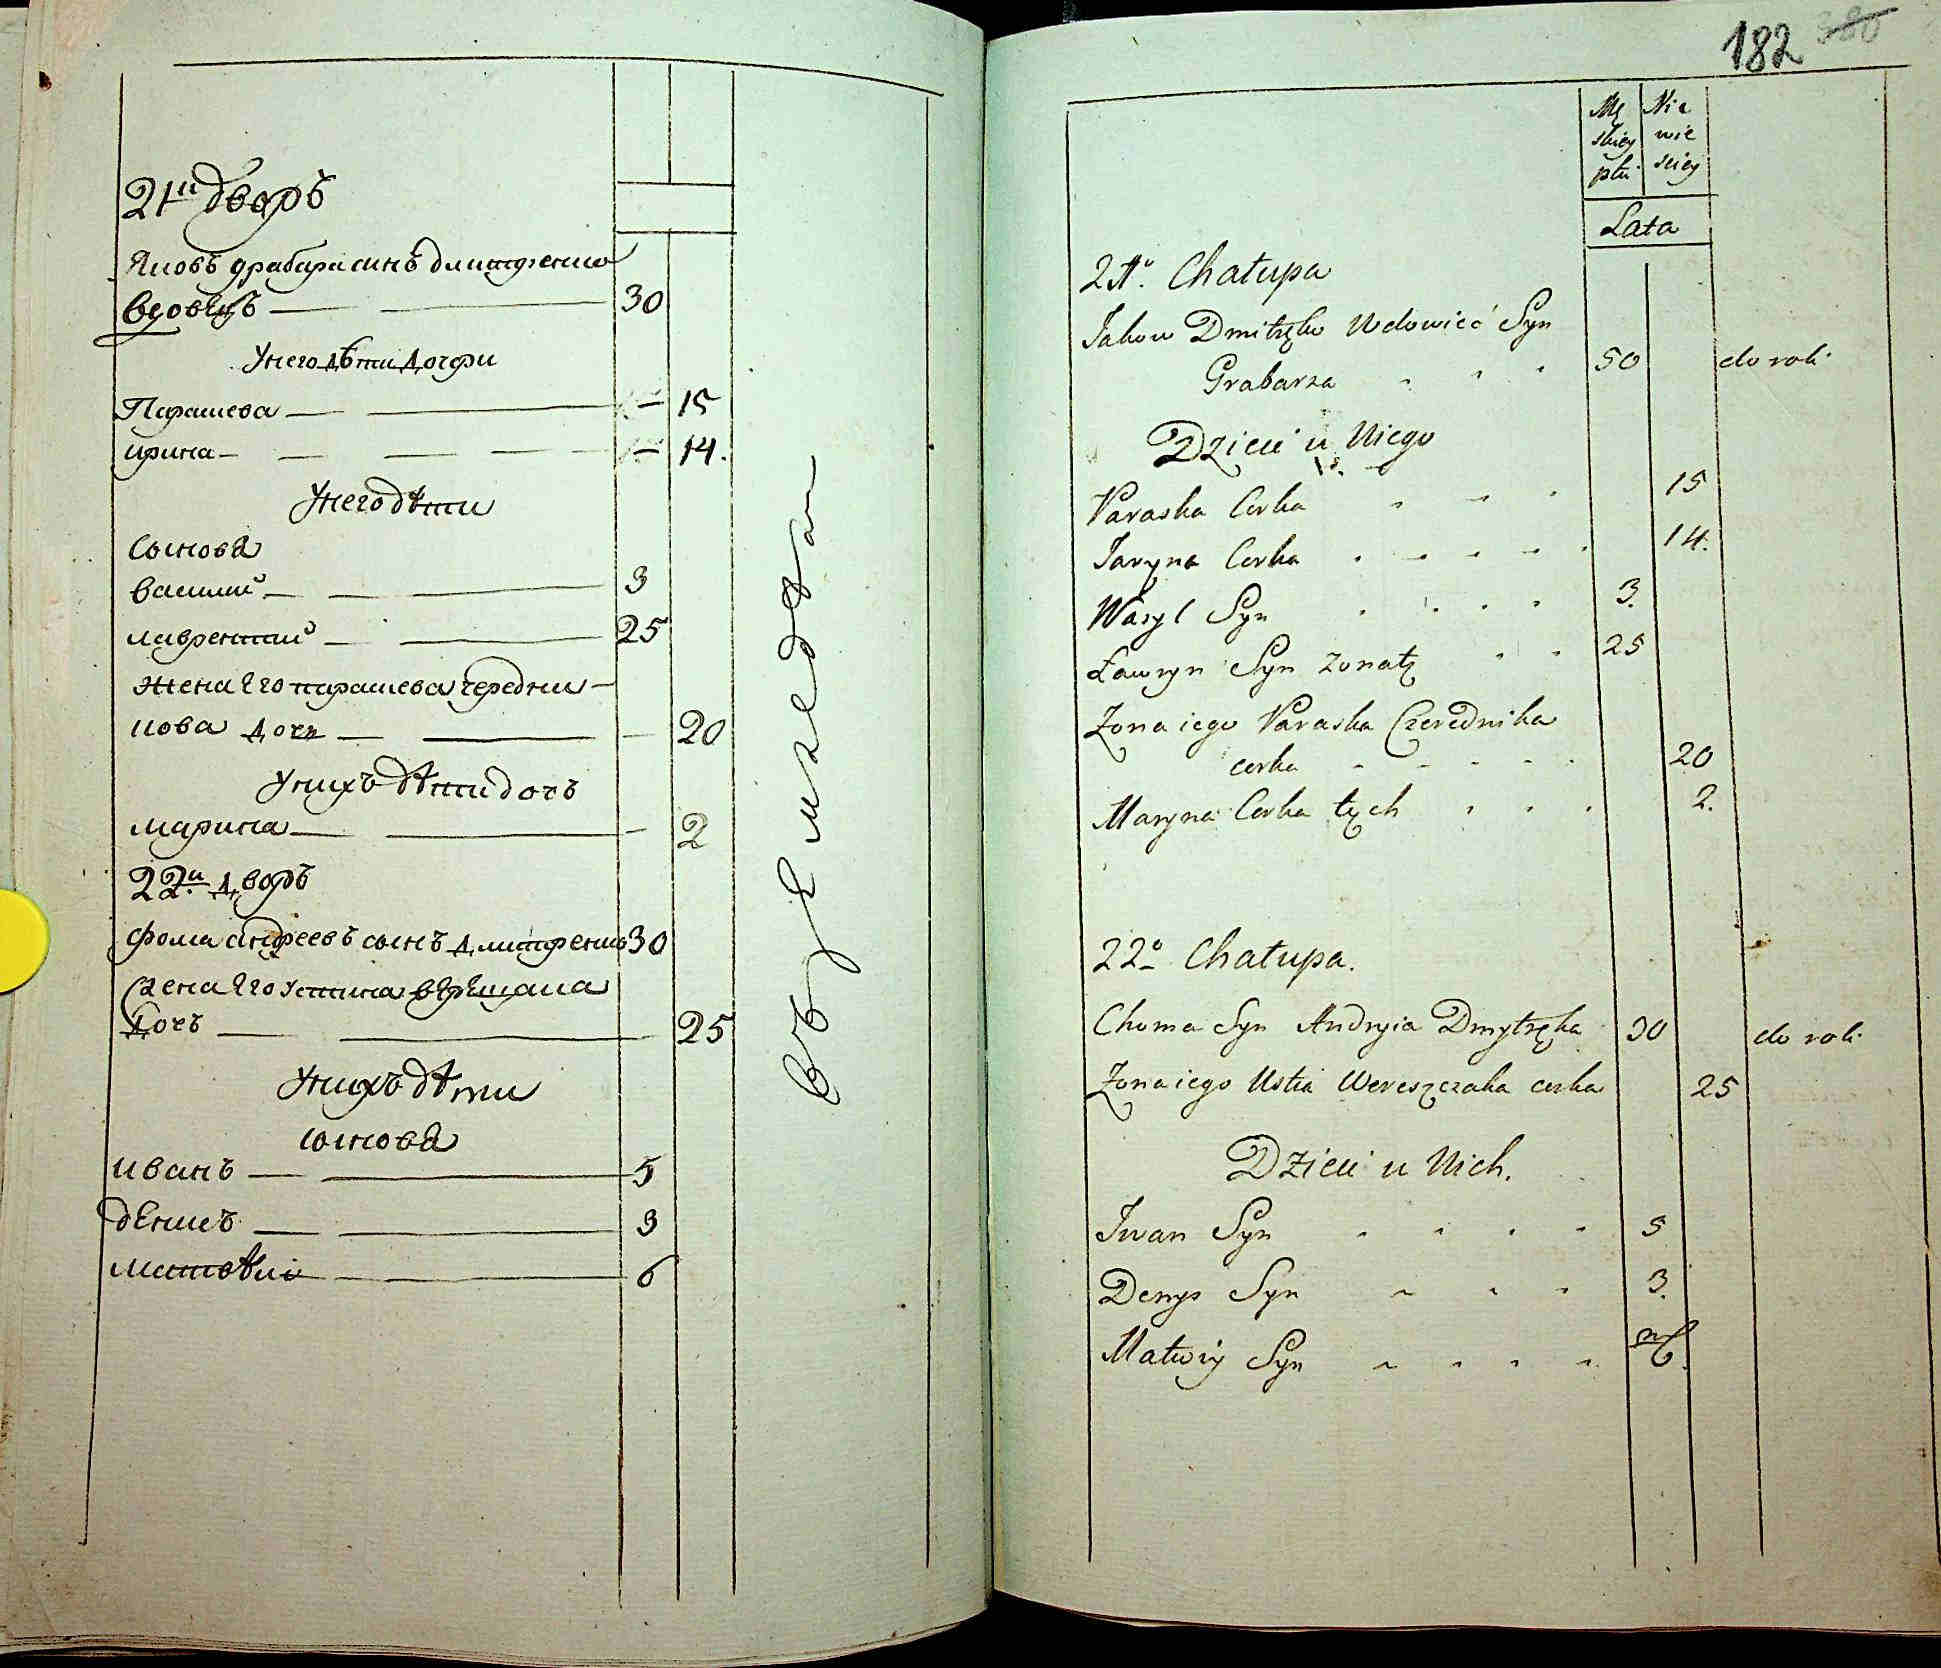 21й дворъ
Яковъ грабаря синъ дмитренко
вдовецъ — — 30
У него дѣти дочери
Парасцева — — — 15
ирина — — — — — — 14.
У него дѣти
сынова
василий — — — 3
лаврентий — — 25
жена Его парасцева чередни-
кова дочь — — — 20
У нихъ дѣти дочь
марина — — — 2
22й дворъ
фома андреевъ сынъ дмитренко 30
жена Его устина верещака
дочъ — — 25
У нихъ дѣти
сынова
иванъ — — 5
денисъ — — 3
матвѣй — 6
въ земледел
182 380
Mę Nie
skiey wie
płci sciey
Lata
21o. Chałupa
Jakow Dmitręko Wdowieć Syn
Grabarza 50 do roli
Dzieci u Niego
Paraska Corka 15
Jaryna Corka 14.
Wasyl Syn 3.
Ławryn Syn zonatÿ 25
Zona iego Paraska Czerednika
corka 20
Maryna Corka tych 2.
22o Chałupa.
Choma Syn Andryia Dmytręka 30 do roli
Zona iego Ustia Wereszczaka corka 25
Dzieci u Nich.
Iwan Syn 5
Denys Syn 3.
Matwiy Syn 6.